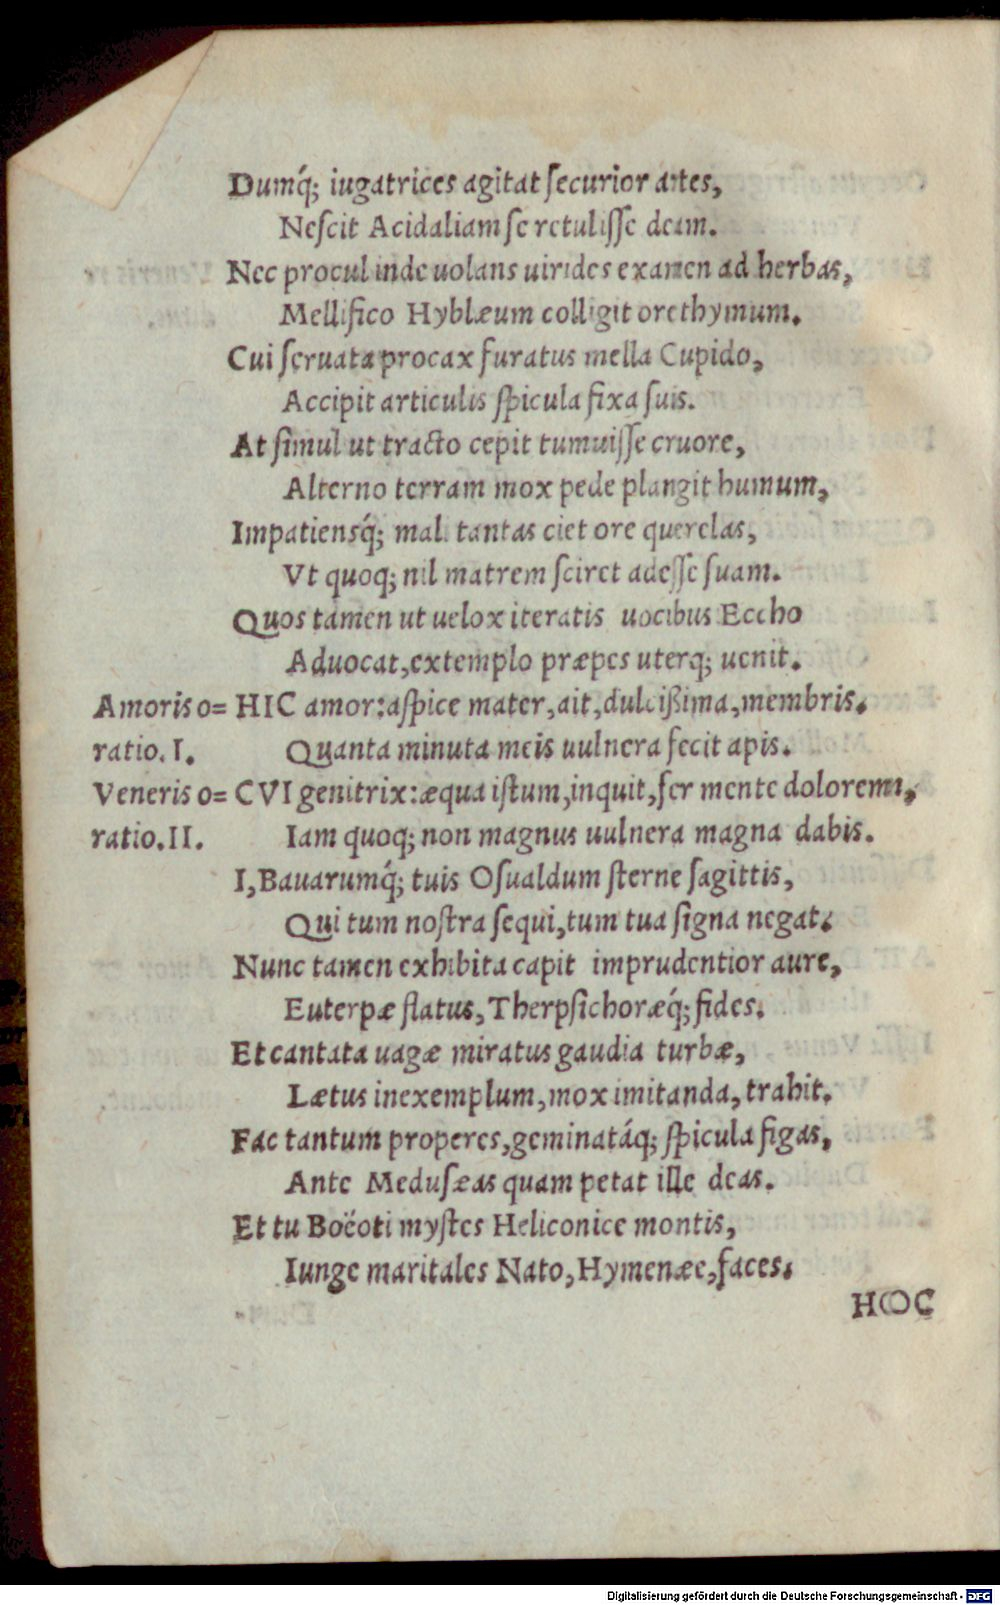 Dumq́; iugatrices agitat ſecurior artes,
Neſcit Acidaliam ſe retuliſſe deam.
Nec procul inde uolans uirides examen ad herbas,
Mellifico Hyblæum colligit ore thymum.
Cui ſeruata procax furatus mella Cupido,
Accipit articulis ſpicula fixa ſuis.
At ſimul ut tracto cepit tumuiſſe cruore,
Alterno terram mox pede plangit humum,
Impatiensq́; mali tantas ciet ore querelas,
Vt quoq; nil matrem ſciret adeſſe ſuam.
Quos tamen ut uelox iteratis uocibus Eccho
Aduocat, extemplo præpes uterq; uenit.
Amoris o= HIC amor: aſpice mater, ait, dulcißima, membris.
ratio. I. Quanta minuta meis uulnera fecit apis.
Veneris o= CVI genitrix: æqua iſtum, inquit, fer mente dolorem,
ratio. II. Iam quoq; non magnus uulnera magna dabis.
I, Bauarumq́; tuis Oſualdum ſterne ſagittis,
Qui tum noſtra ſequi, tum tua ſigna negat.
Nunc tamen exhibita capit imprudentior aure,
Euterpæ flatus, Therpſichoræq́; fides.
Et cantata uagæ miratus gaudia turbæ,
Lætus in exemplum, mox imitanda, trahit.
Fac tantum properes, geminatáq; ſpicula figas,
Ante Meduſæas quam petat ille deas.
Et tu Boëoti myſtes Heliconice montis,
Iunge maritales Nato, Hymenæe, faces.
HOC
Digitalisierung gefördert durch die Deutsche Forschungsgemeinschaft - DFG